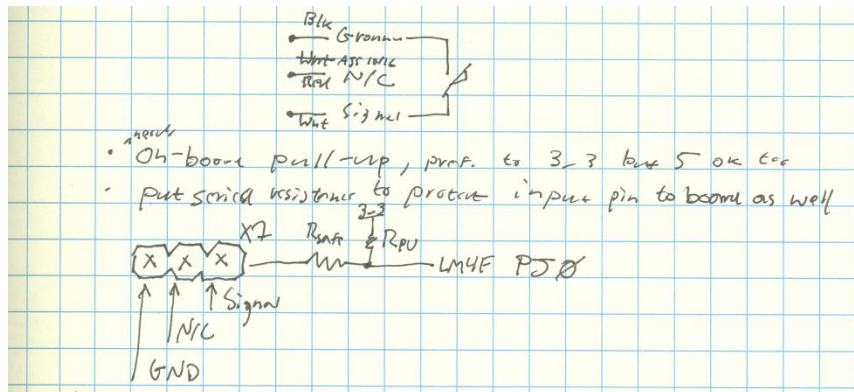 Blk Ground
N/C
Red N/C
Wht Signal
needs
· On-board pull-up, pref. to 3_3 but 5 ok too
· put serial resistance to protect input pin to board as well
3-3
X7 Rsafe RPU
LM4F PJ0
Signal
N/C
GND